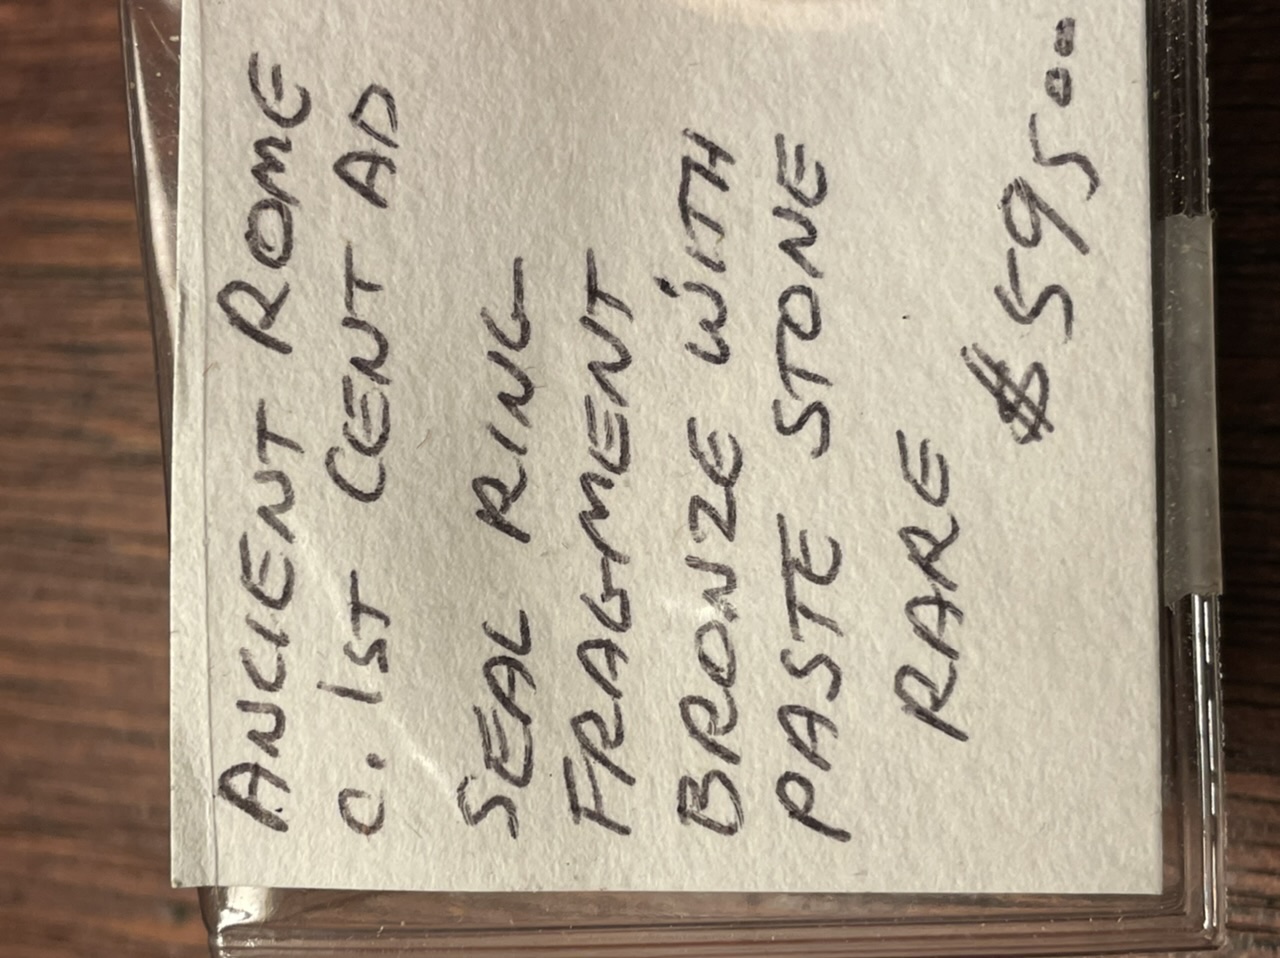 ANCIENT ROME
c. 1ST CENT AD
SEAL RING
FRAGMENT
BRONZE WITH
PASTE STONE
RARE
$595.00